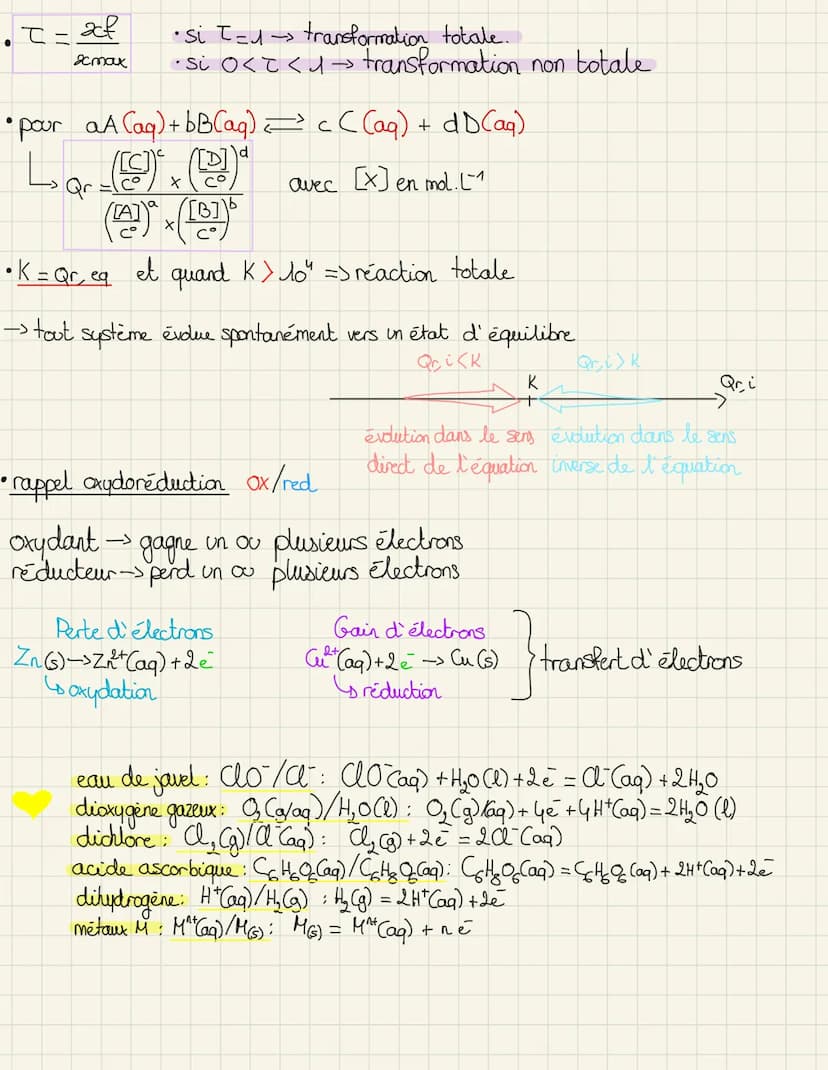 • τ = xf/xmax
• si τ=1 → transformation totale.
• si 0<τ<1 → transformation non totale
• pour aA(aq) + bB(aq) ⇌ cC(aq) + dD(aq)
↳ Qr = (([C]/c°)^c × ([D]/c°)^d) / (([A]/c°)^a × ([B]/c°)^b) avec [X] en mol.L⁻¹
• K = Qr,eq et quand K > 10⁴ => réaction totale
→ tout système évolue spontanément vers un état d'équilibre
Qr,i<K Qr,i>K
K Qr,i
évolution dans le sens direct de l'équation
évolution dans le sens inverse de l'équation
• rappel oxydoréduction ox/red
oxydant → gagne un ou plusieurs électrons
réducteur → perd un ou plusieurs électrons
Perte d'électrons
Zn(s) → Zn²⁺(aq) + 2e⁻
↳ oxydation
Gain d'électrons
Cu²⁺(aq) + 2e⁻ → Cu(s)
↳ réduction
} transfert d'électrons
eau de javel : ClO⁻/Cl⁻ : ClO⁻(aq) + H₂O(l) + 2e⁻ = Cl⁻(aq) + 2H₂O
dioxygène gazeux : O₂(g/aq)/H₂O(l) : O₂(g)/(aq) + 4e⁻ + 4H⁺(aq) = 2H₂O(l)
dichlore : Cl₂(g)/Cl⁻(aq) : Cl₂(g) + 2e⁻ = 2Cl⁻(aq)
acide ascorbique : C₆H₆O₆(aq)/C₆H₈O₆(aq) : C₆H₈O₆(aq) = C₆H₆O₆(aq) + 2H⁺(aq) + 2e⁻
dihydrogène : H⁺(aq)/H₂(g) : H₂(g) = 2H⁺(aq) + 2e⁻
métaux M : Mⁿ⁺(aq)/M(s) : M(s) = Mⁿ⁺(aq) + n e⁻